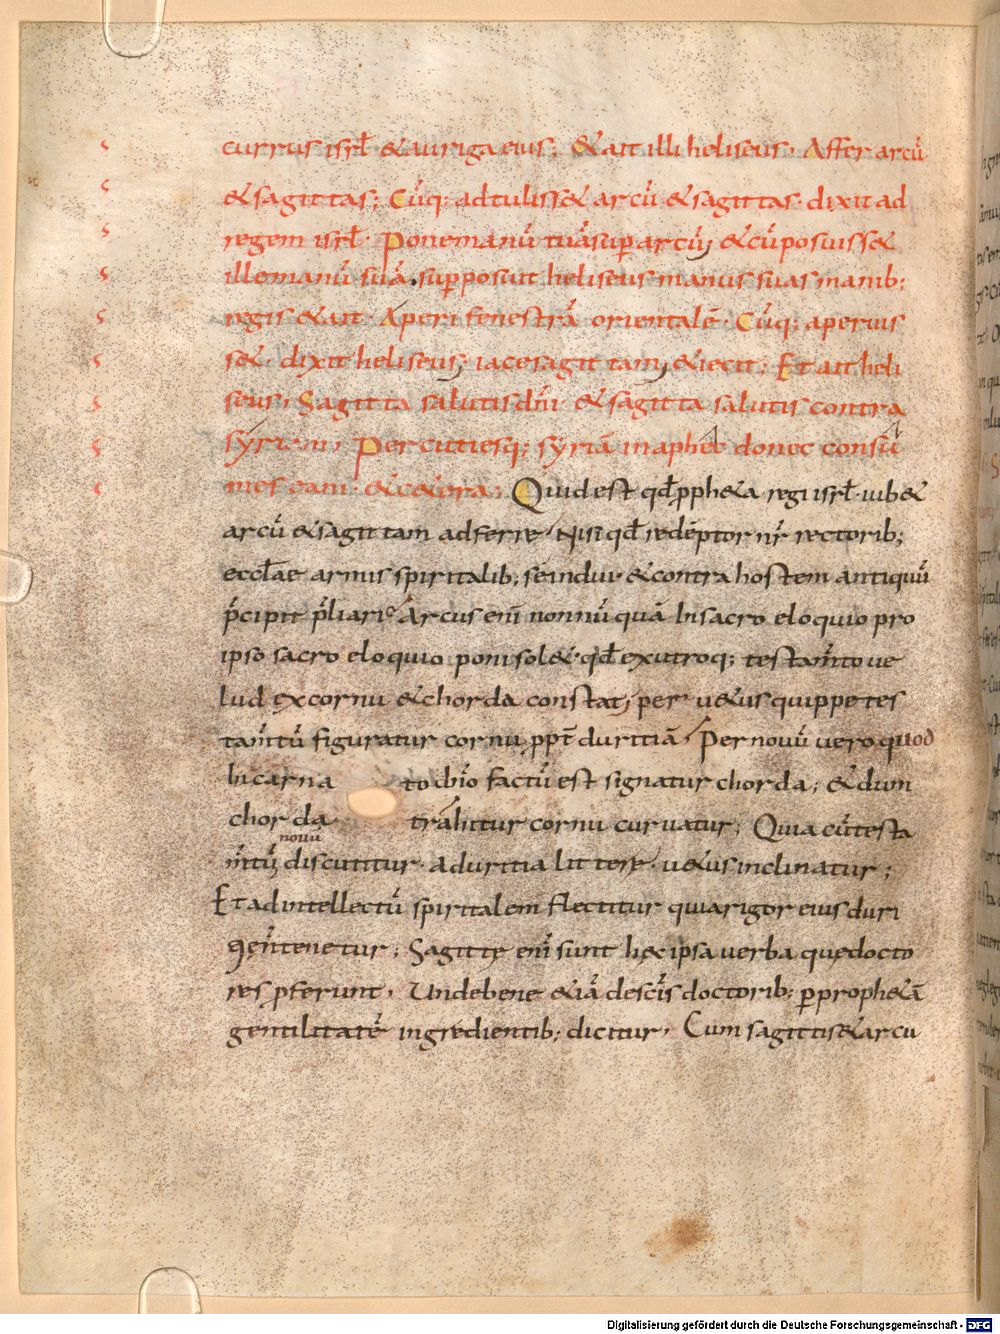 currus isrł &auriga eius; &ait illi heliseus· Affer arcū
&sagittas; Cūq; adtuliss& arcū &sagittas· dixit ad
regem isrł· Pone manū tuā sup arcū; &cū posuiss&
ille manū suā· supposuit heliseus manus suas manib;
regis &ait· Aperi fenestrā orientalē· Cūq; aperuis
s&· dixit heliseus; iace sagittam; &iecit; Et ait heli
seus· Sagitta salutis dn̄i· &sagitta salutis contra
syriam· Percutiesq; syriā in aphec donec consū
mes eam· &c&era; Quid est qđ pph&a regi isrł· iub&
arcū &sagittam adferre· Nisi qđ redēptor nr̄ rectorib;
eccłae armis spiritalib; se indui· &contra hostem antiquū
p̄cipit p̄liari· Arcus enī nonnūquā In sacro eloquio pro
ipso sacro eloquio poni sol&· qđ ex utroq; testam̄to ue
lud ex cornu &chorda constat; per u&us quippe tes
tam̄tū figuratur cornu ppt̄ duritiā· Per nouū uero quod
Incarnato dn̄o factū est signatur chorda; &dum
chorda trahitur cornu curuatur; Quia cū testa
nouū
m̄tū; discutitur· a duritia litterę· u&us inclinatur;
Et ad intellectū spiritalem flectitur quia rigor eius duri
9em̄tenetur; Sagittę enī sunt hęc ipsa uerba quę docto
res pferunt· Unde bene &iā de sc̄is doctorib; p proph&ā
gentilitatē ingredientib; dicitur· Cum sagittis &arcu
Digitalisierung gefördert durch die Deutsche Forschungsgemeinschaft - DFG